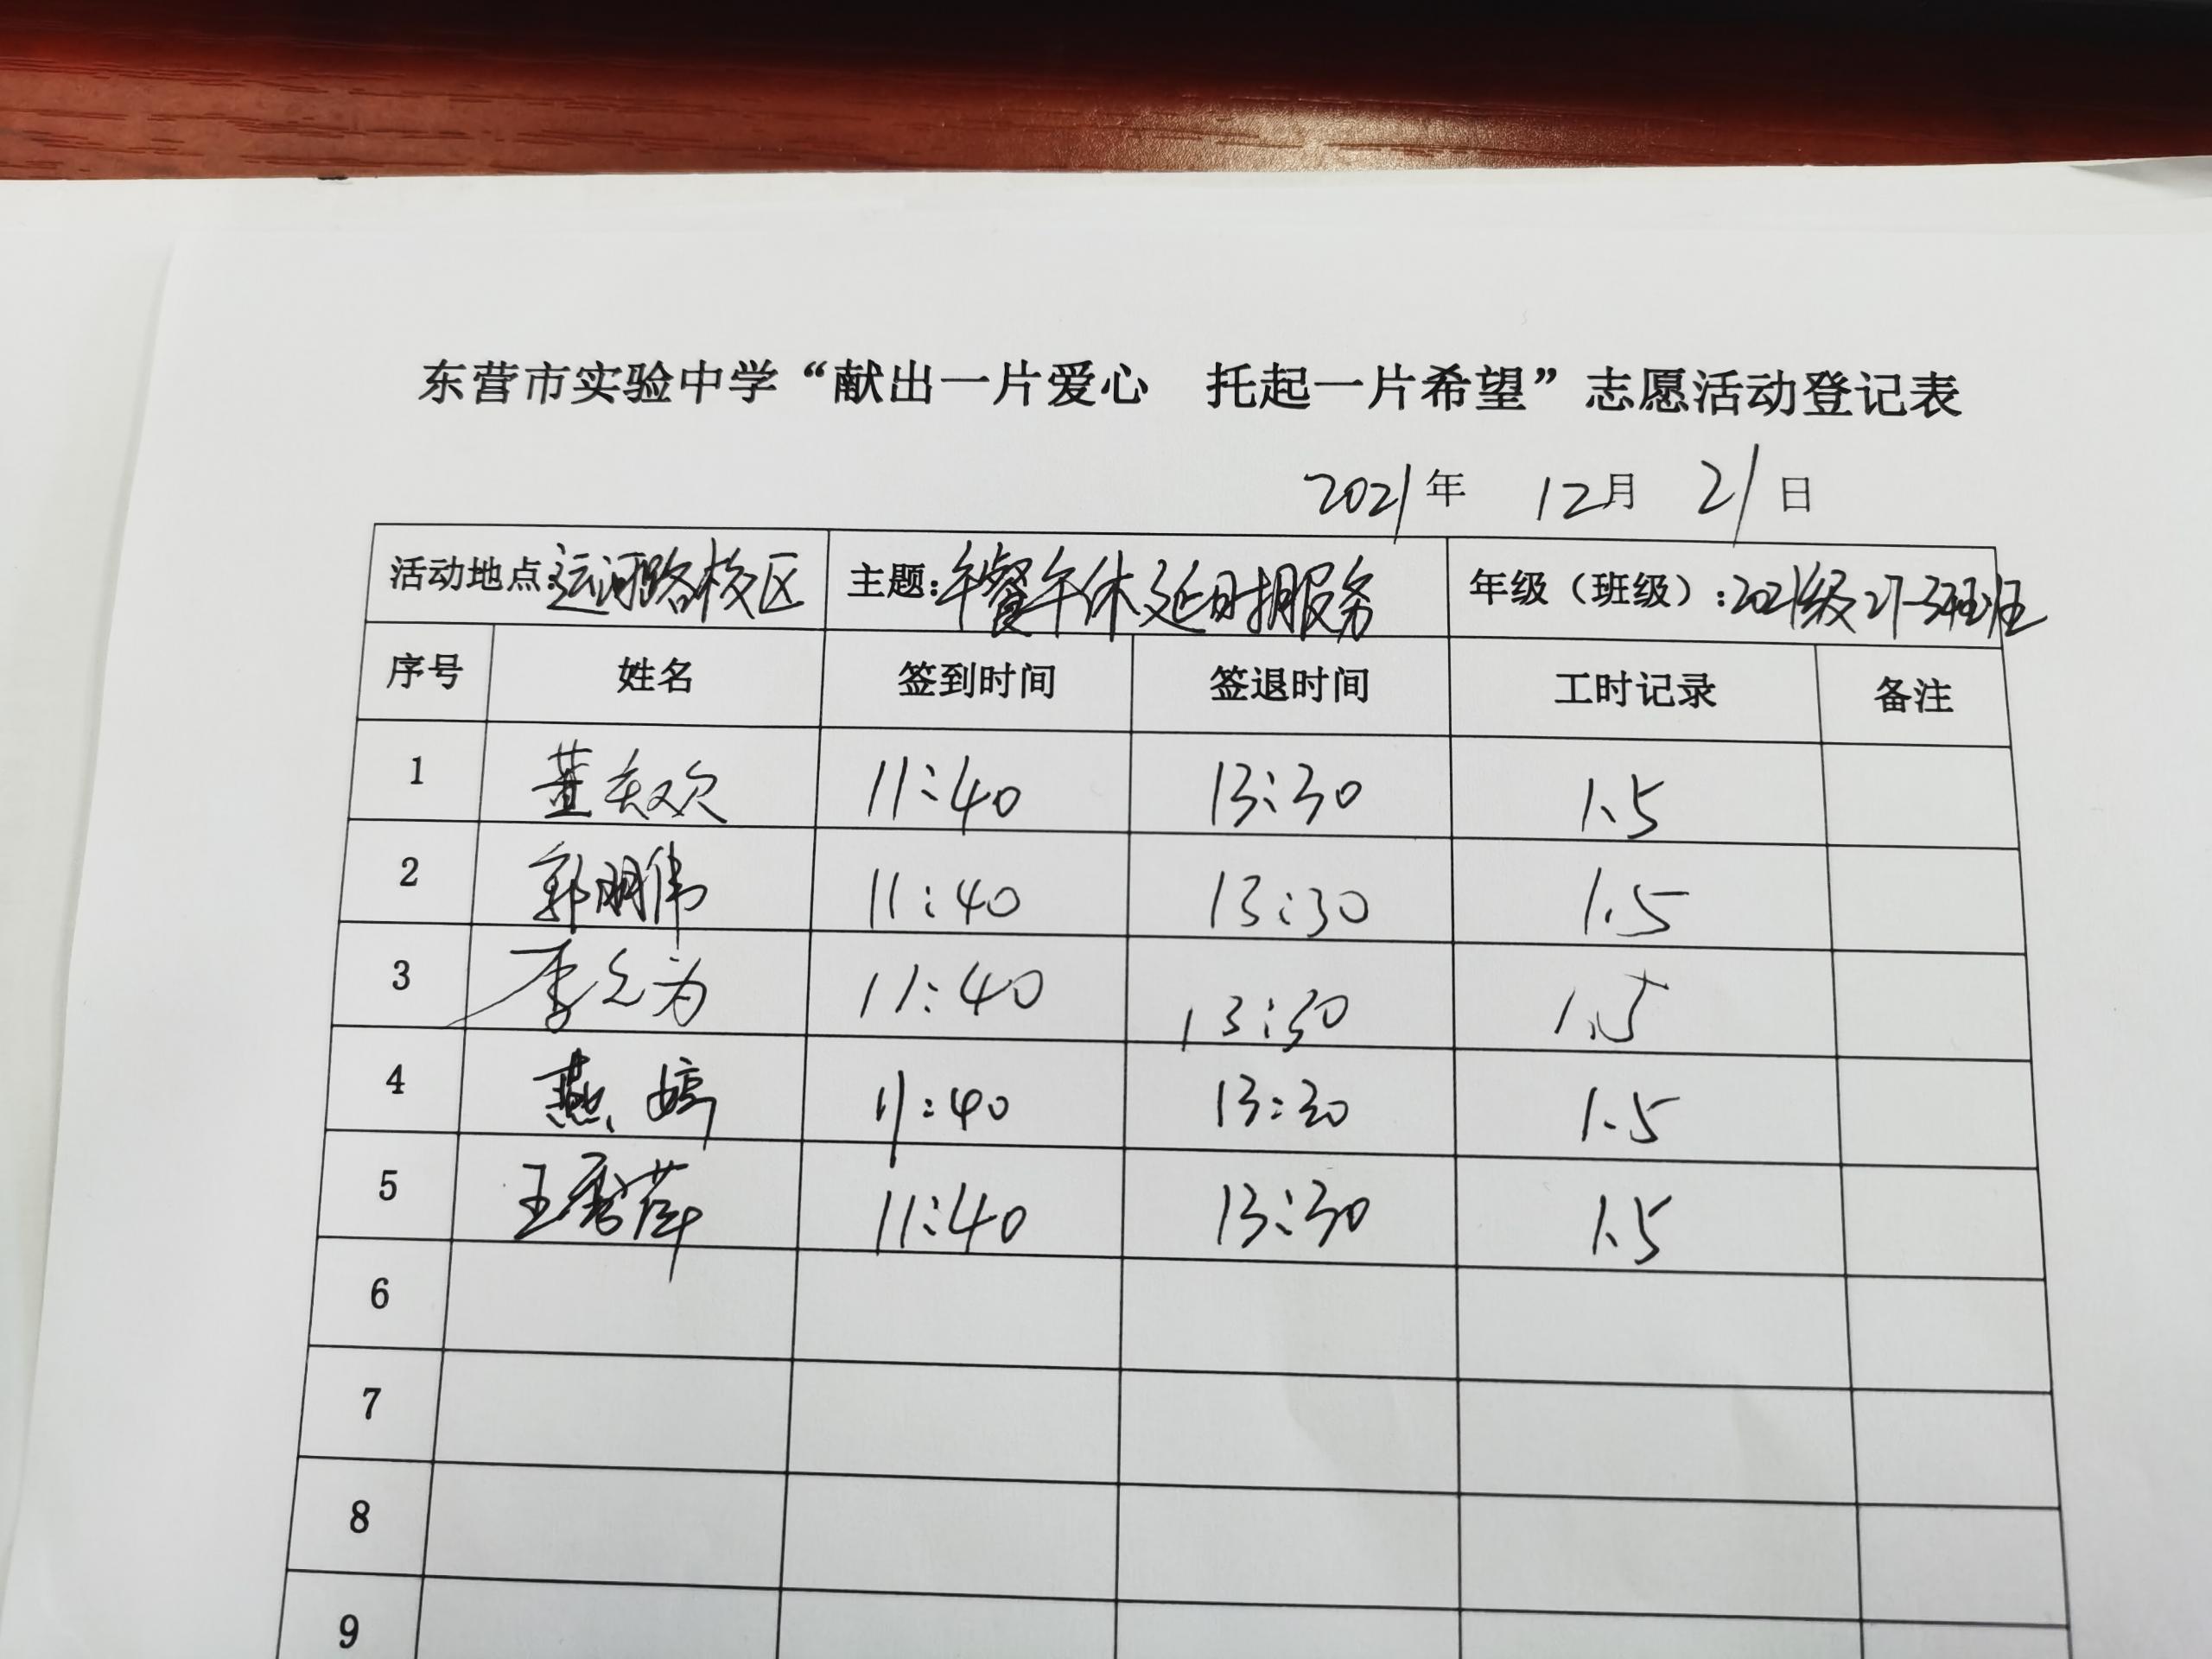 东营市实验中学“献出一片爱心 托起一片希望”志愿活动登记表
2021年 12月 21日
活动地点:运河路校区 主题:午餐午休延时服务 年级（班级）:2021级27-34班
序号 姓名 签到时间 签退时间 工时记录 备注
1 董 欢 11:40 13:30 1.5
2 郭鹏伟 11:40 13:30 1.5
3 李 为 11:40 13:30 1.5
4 燕婷 11:40 13:30 1.5
5 王秀萍 11:40 13:30 1.5
6
7
8
9